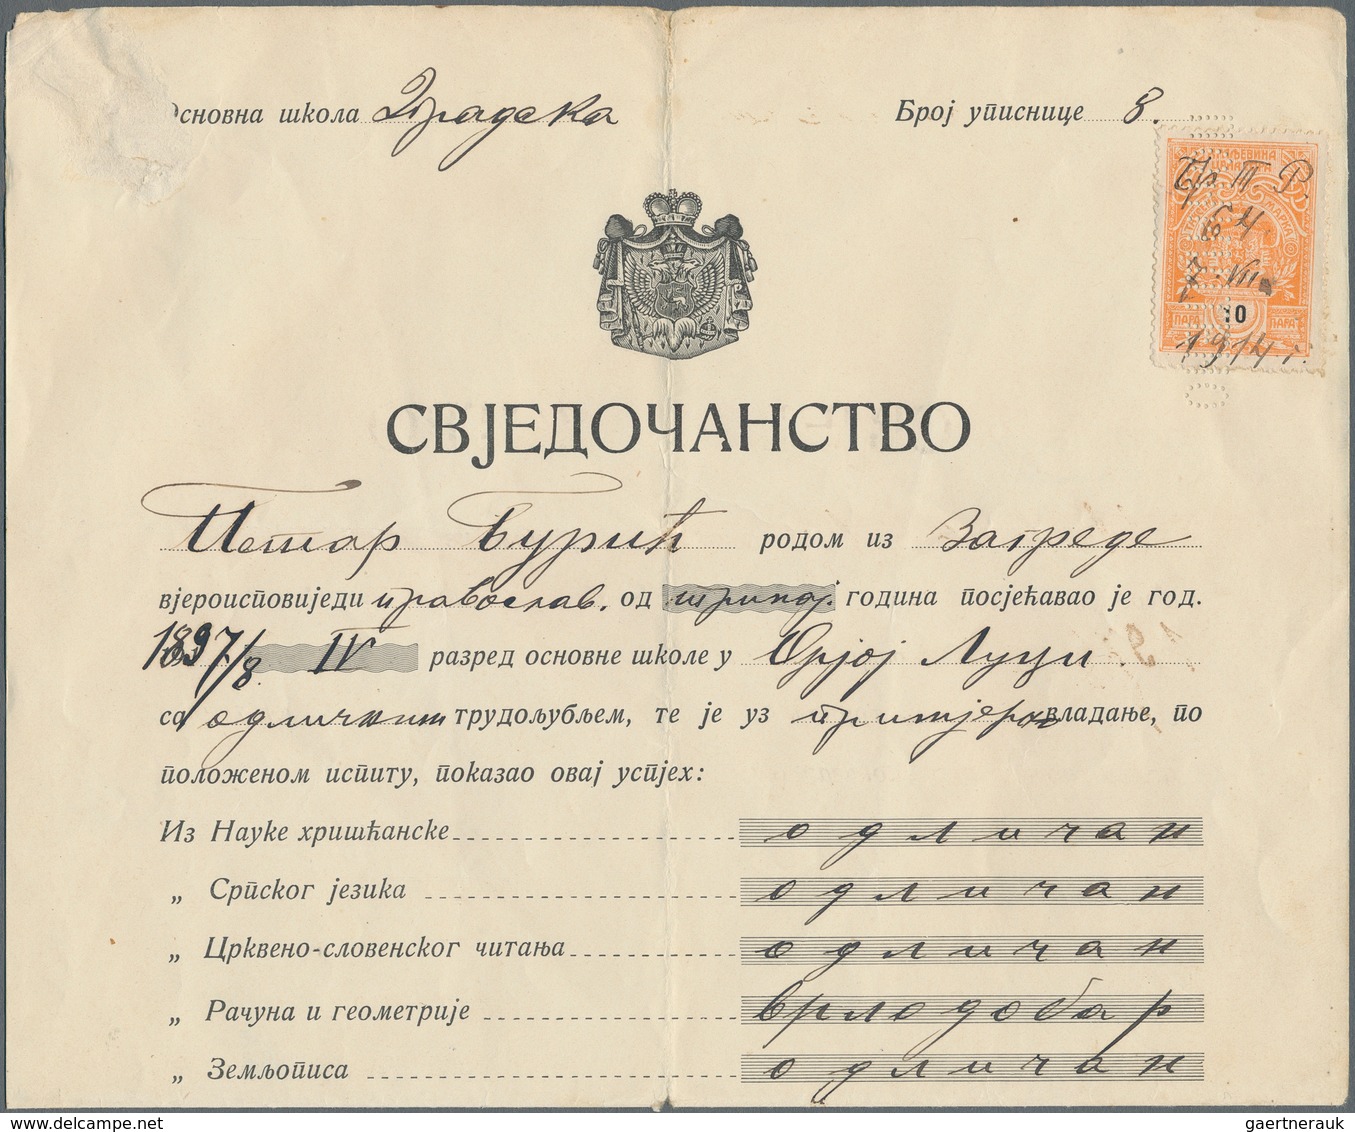 Основна школа Градска Број уписнице 8.
КЉЕВИНА
ЦРНА ГОРА
Бр. III Р.
64
7. VII
ТАКСЕНА МАРКА
10
ПАРА ПАРА
1914 г.
СВЈЕДОЧАНСТВО
Петар Ђурић родом из Загреде
вјероисповиједи православ. од година посјећавао је год.
1897/8. IV разред основне школе у Орјој Луци
са одличним трудољубљем, те је уз примјерно владање, по
положеном испиту, показао овај успјех:
Из Науке хришћанске одличан
„ Српског језика одличан
„ Црквено-словенског читања одличан
„ Рачуна и геометрије врлодобар
„ Земљописа одличан
www.delcampe.net
gaertnerauk